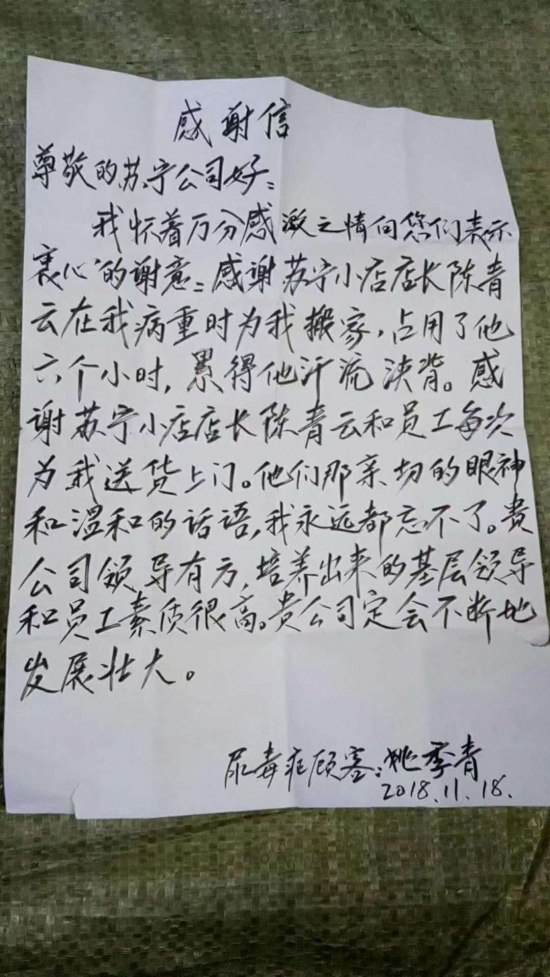 感谢信
尊敬的苏宁公司好：
我怀着万分感激之情向您们表示
衷心的谢意：感谢苏宁小店店长陈青
云在我病重时为我搬家，占用了他
六个小时，累得他汗流浃背。感
谢苏宁小店店长陈青云和员工每次
为我送货上门。他们那亲切的眼神
和温和的话语，我永远都忘不了。贵
公司领导有方，培养出来的基层领导
和员工素质很高。贵公司定会不断地
发展壮大。
尿毒症顾客：姚季青
2018.11.18.